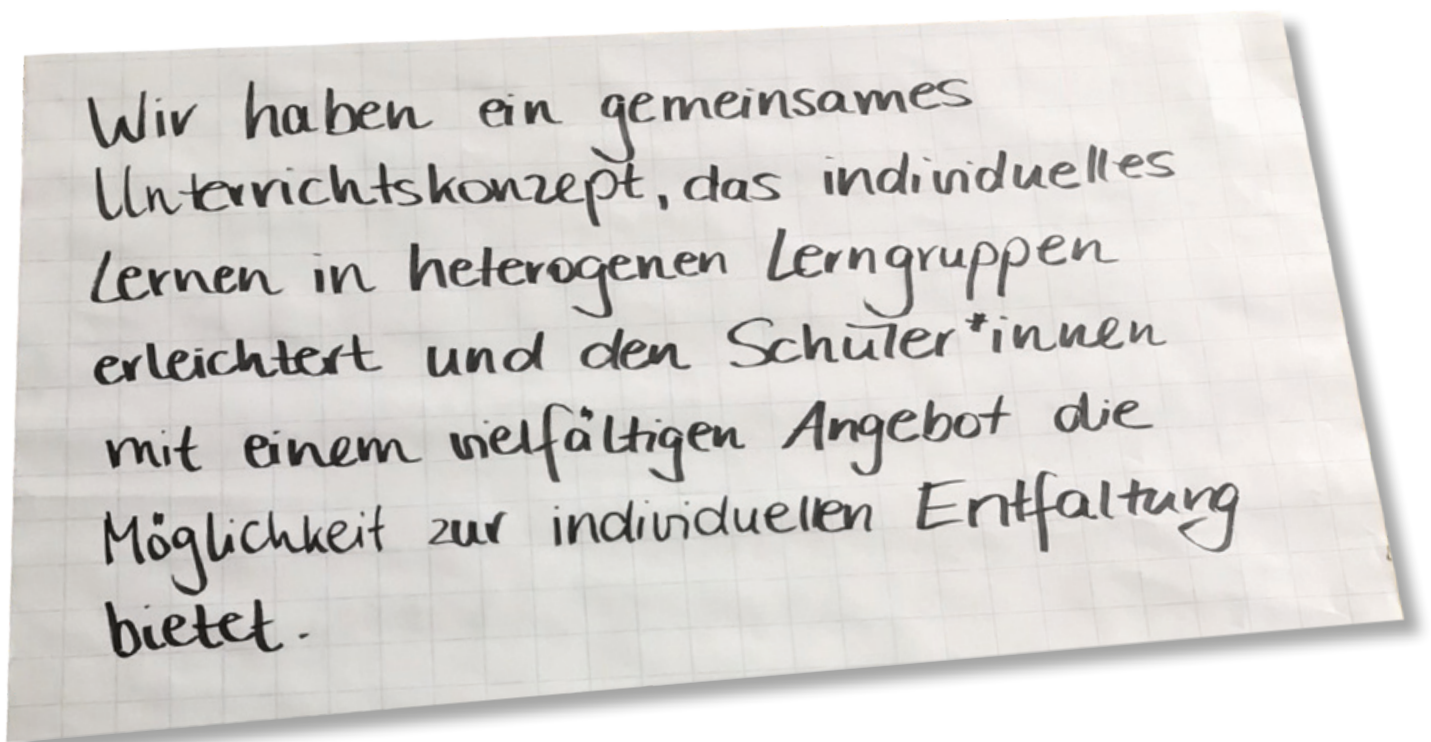 Wir haben ein gemeinsames
Unterrichtskonzept, das individuelles
Lernen in heterogenen Lerngruppen
erleichtert und den Schüler*innen
mit einem vielfältigen Angebot die
Möglichkeit zur individuellen Entfaltung
bietet.